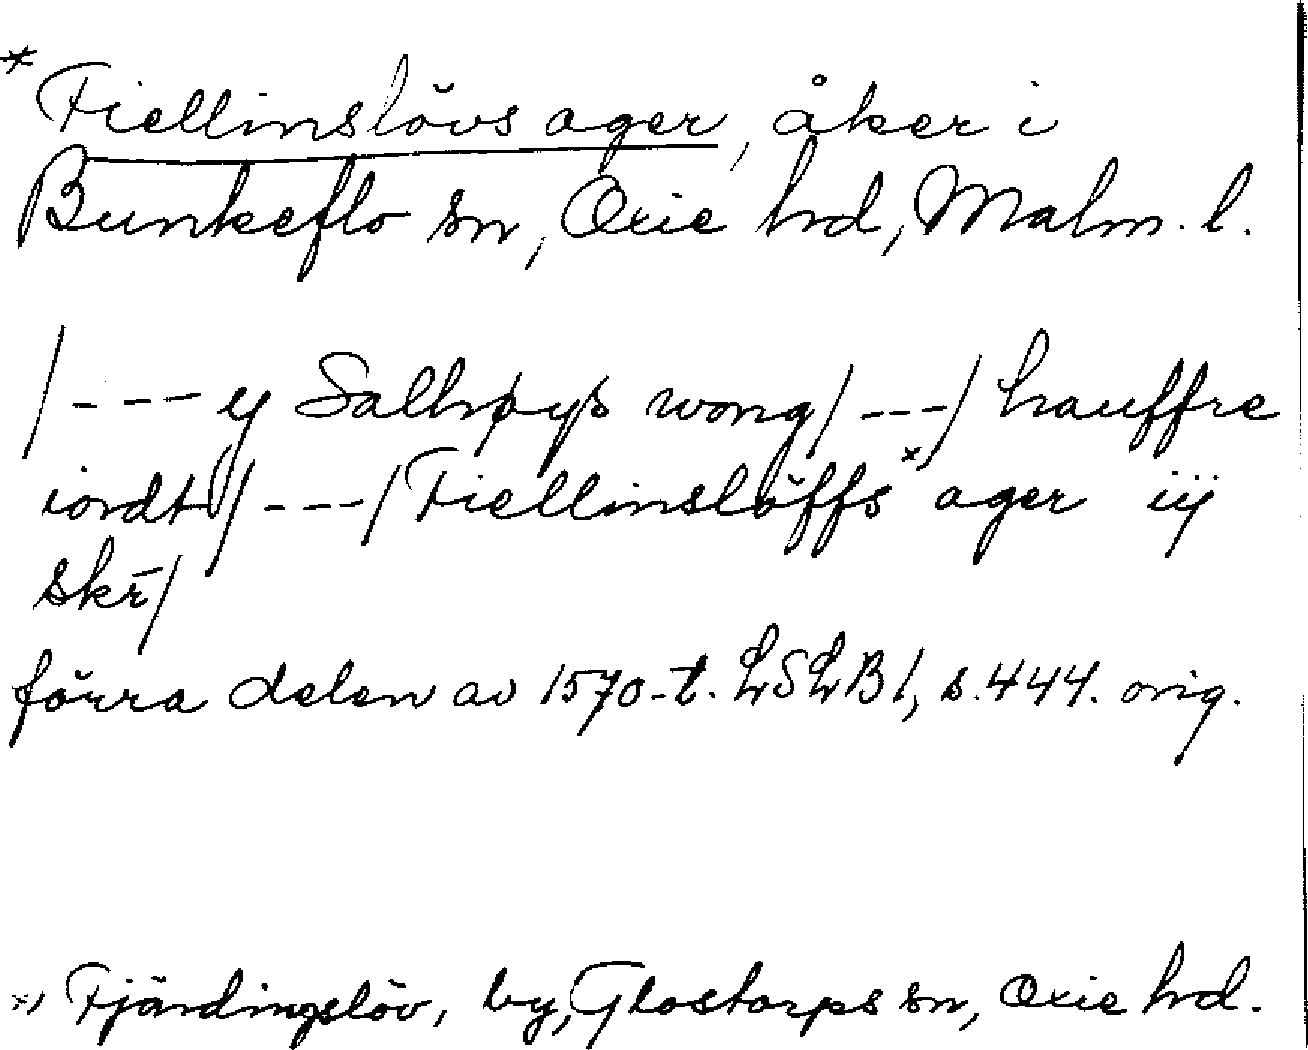 * Fiellinslövs ager, åker i
Bunkeflo sn, Oxie hrd, Malm. l.
/--- ij Salhøyß wong/ ---/ hauffre
iordt/ ---/ Fiellinslöffs* ager iij
skr̄/
förra delen av 1570-t. LSLB1, s. 444. orig.
x, Fjärdingslöv, by, Glostorps sn, Oxie hrd.